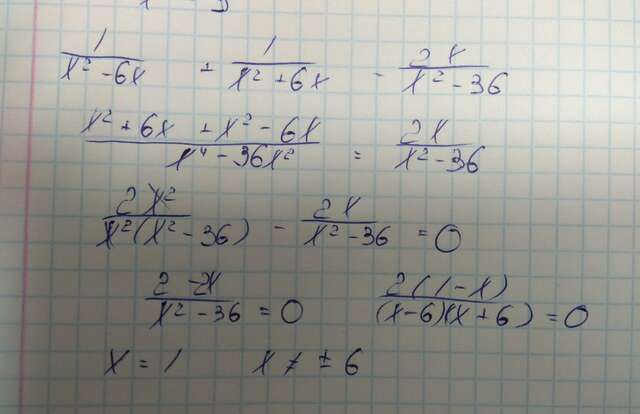 1/(x² - 6x) + 1/(x² + 6x) - 2x/(x² - 36)
(x² + 6x + x² - 6x)/(x⁴ - 36x²) = 2x/(x² - 36)
2x²/(x²(x² - 36)) - 2x/(x² - 36) = 0
(2 - 2x)/(x² - 36) = 0 2(1 - x)/((x - 6)(x + 6)) = 0
x = 1 x ≠ ± 6